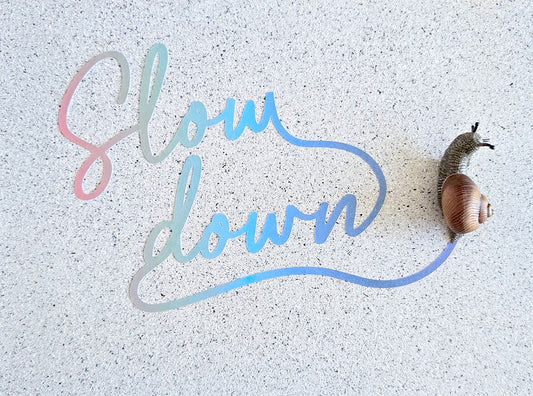 Slow
down